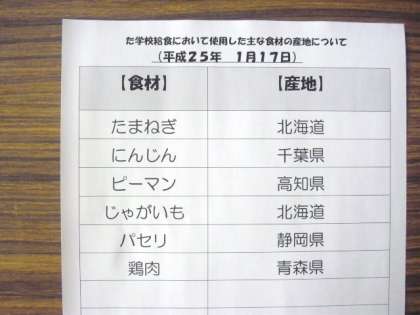 た学校給食において使用した主な食材の産地について
（平成２５年　１月１７日）
【食材】　【産地】
たまねぎ　北海道
にんじん　千葉県
ピーマン　高知県
じゃがいも　北海道
パセリ　静岡県
鶏肉　青森県